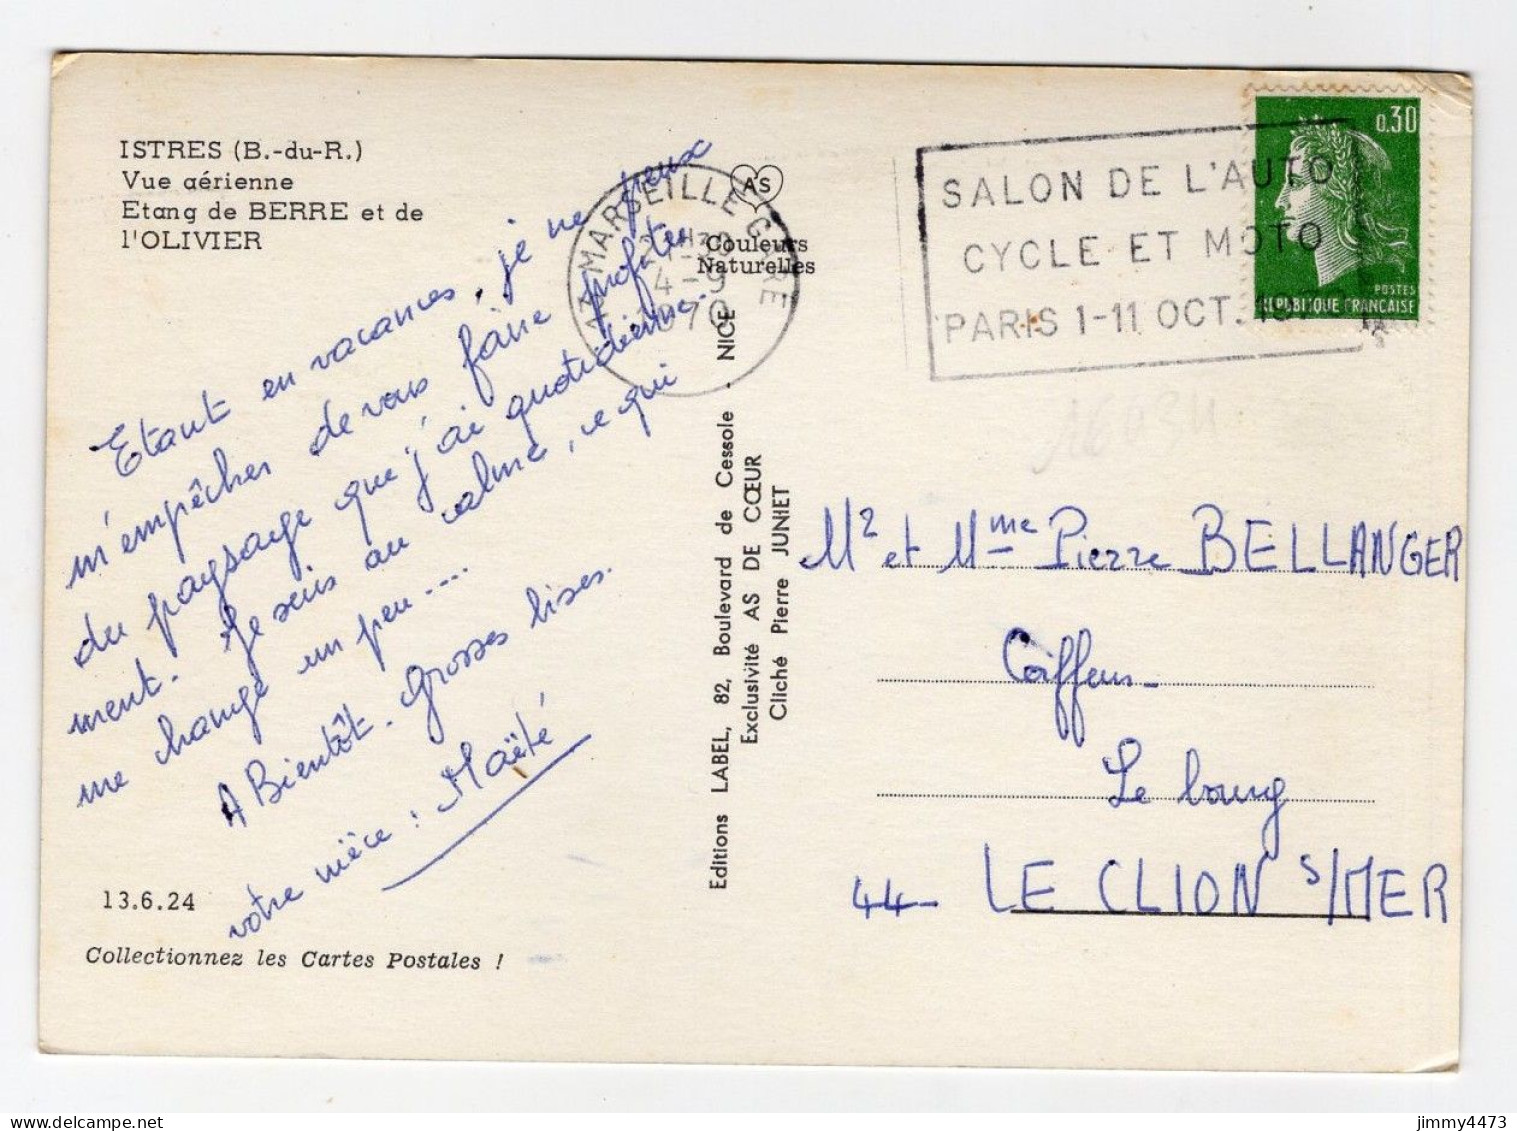 ISTRES (B.-du-R.)
Vue aérienne
Etang de BERRE et de
l'OLIVIER
Etant en vacances, je ne peux
m'empêcher de vous faire profiter
du paysage que j'ai quotidienne-
ment. Je suis au calme, ce qui
me change un peu....
A Bientôt. Grosses bises.
votre nièce : Maïté
13.6.24
Collectionnez les Cartes Postales !
AS
Couleurs
Naturelles
Editions LABEL, 82, Boulevard de Cessole - NICE
Exclusivité AS DE CŒUR
Cliché Pierre JUNIET
13 MARSEILLE GARE
4-9
1970
SALON DE L'AUTO
CYCLE ET MOTO
PARIS 1-11 OCT.
0,30
POSTES
REPUBLIQUE FRANCAISE
Mr et Mme Pierre BELLANGER
Coiffeur -
Le bourg
44- LE CLION S/MER
jimmy4473